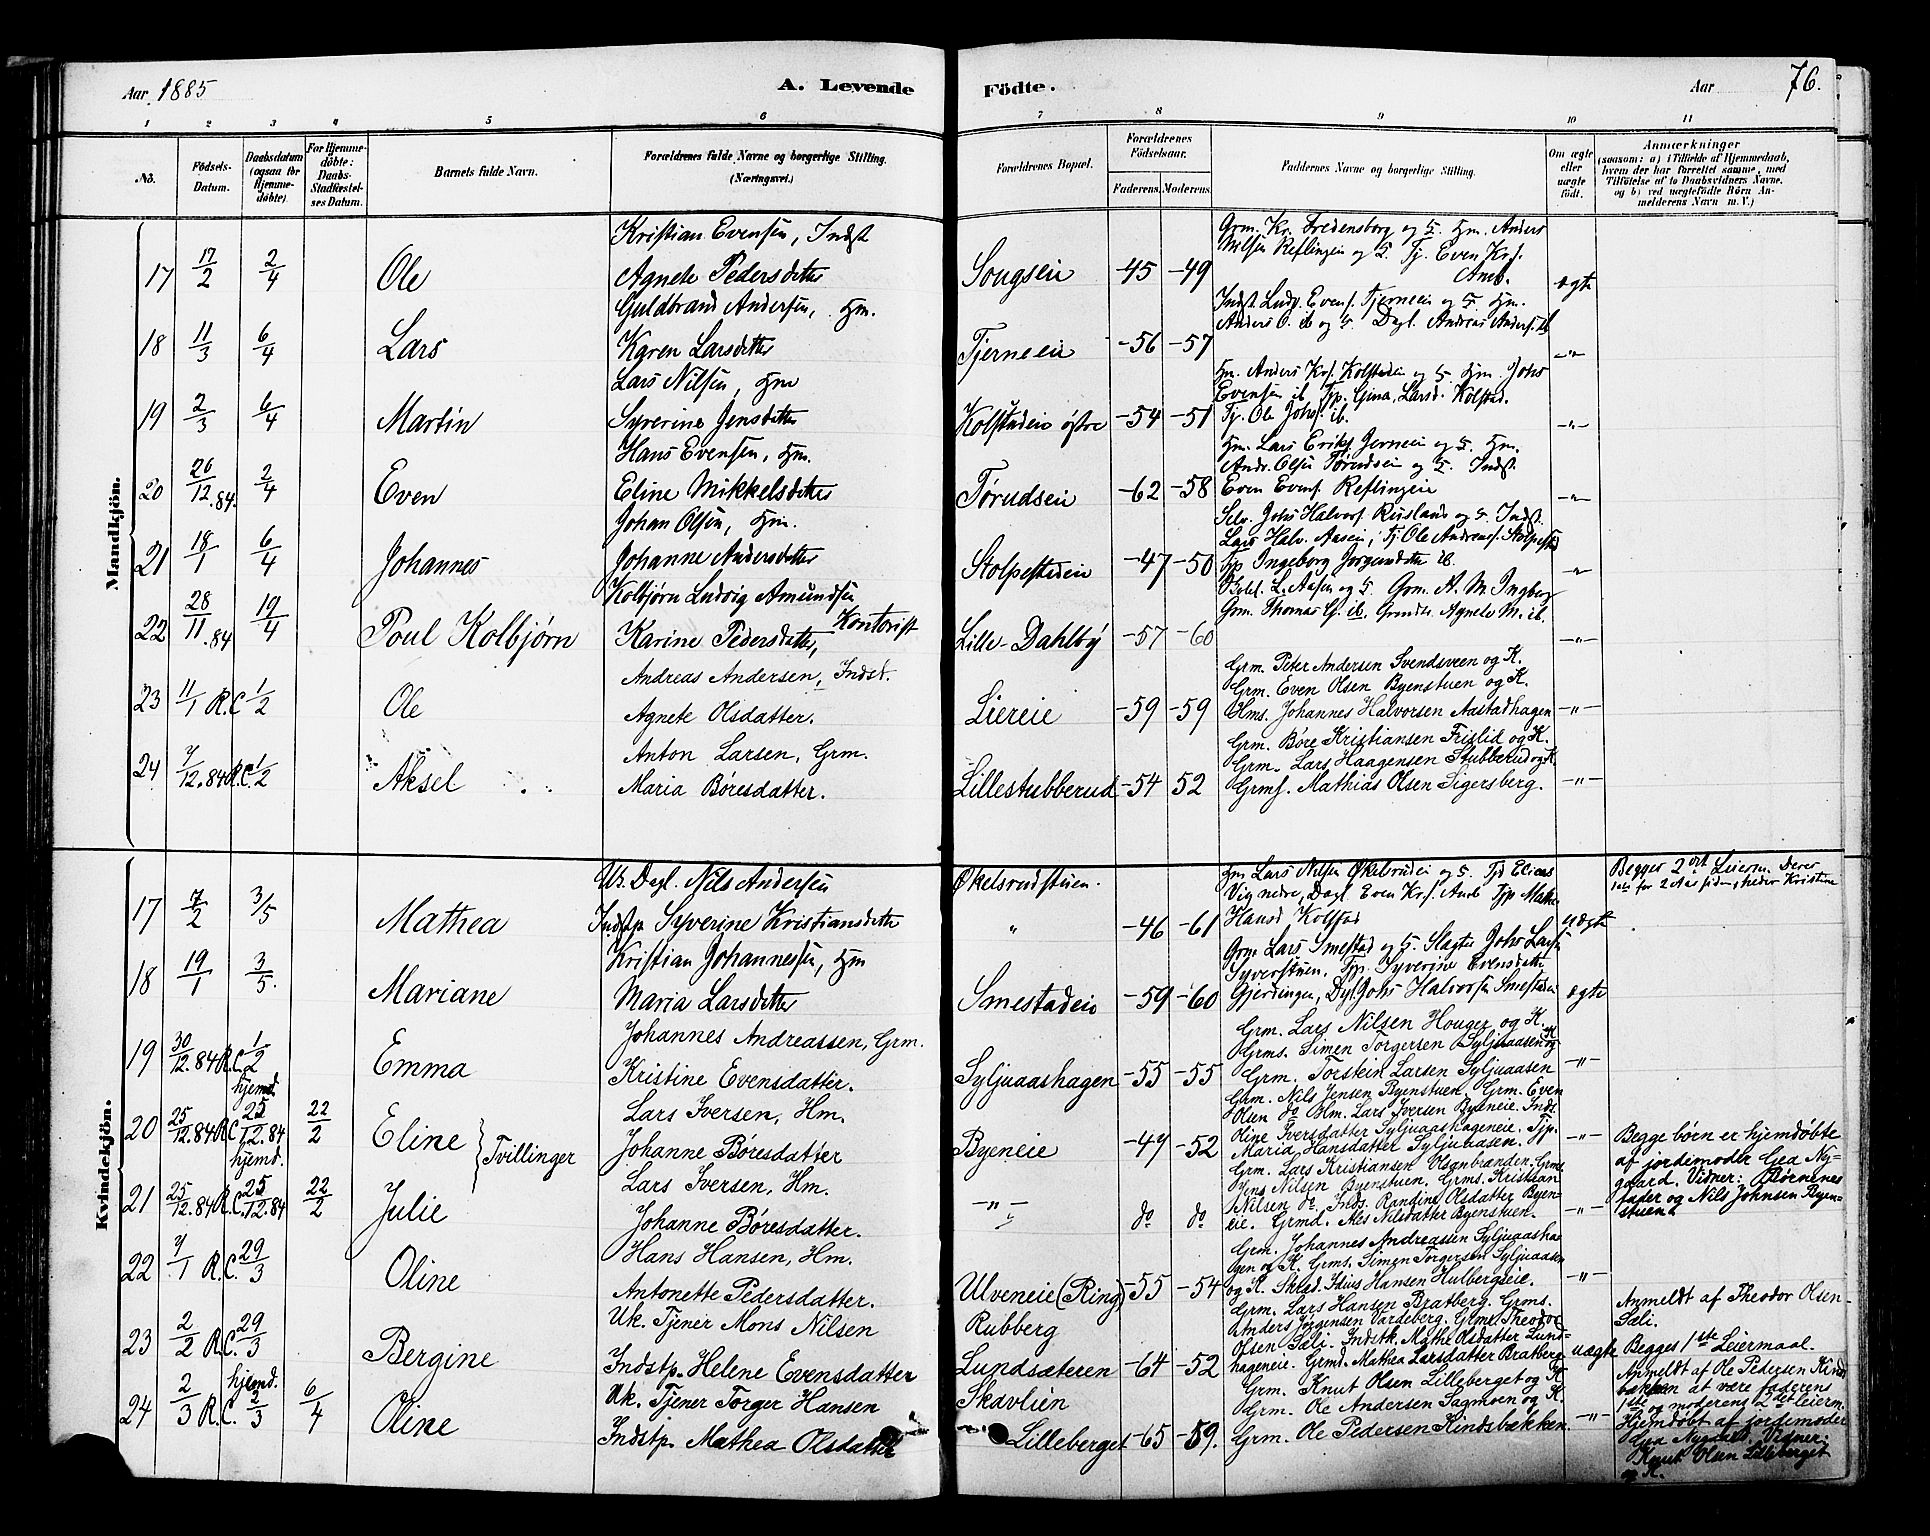 Aar 1885
A. Levende
Födte.
Aar
76.
1 2 3 4 5 6 7 8 9 10 11
No.
Fødsels-Datum.
Daabsdatum (ogsaa for Hjemme-døbte).
For Hjemme-døbte: Daabs-Stadfæstel-ses Datum.
Barnets fulde Navn.
Forældrenes fulde Navne og borgerlige Stilling. (Næringsvei.)
Forældrenes Bopæl.
Forældrenes Fødselsaar.
Faderens. Moderens.
Faddernes Navne og borgerlige Stilling.
Om ægte eller uægte født.
Anmærkninger
(saasom: a) i Tilfælde af Hjemmedaab, hvem der har forrettet samme, med Tilføielse af to Daabsvidners Navne, og b) ved uægtefødte Børn An-melderens Navn m. V.)
Mandkjön.
Kristian Evensen, Indst
Grm. Kr. Fredensborg og K. Hm. Anders
Nilsen Reflingeie og K. Tj. Even Kr.
17 17/2 2/4 Ole Agnete Pedersdatter Sougseie -45 -49 Aneb. ægte
Guldbrand Andersen, Hm.
Indst. Ludv. Evens. Tjerneeie og K. Hm.
Anders O. ib og K. Dagl. Andreas Anders. ib
18 11/3 6/4 Lars Karen Larsdatter Tjerneeie -56 -57 -"-
Lars Nilsen, Hm
Hm. Anders Krs. Kolstadeie og K. Hm. Johs
Evensen ib Tjp. Gina Larsd. Kolstad.
19 2/3 6/4 Martin Syverine Jensdatter Kolstadeie østre -54 -51 Tj. Ole Johs. ib. -"-
Hans Evensen, Hm.
Hm. Lars Eriks. Jerneeie og K. Hm.
Andr. Olsen Tørudseie og K. Indst.
20 26/12.84. 2/4 Even Eline Mikkelsdatter Tørudseie -62 -58 Even Evens. Reflingeie -"-
Johan Olsen, Hm.
Selv. Johs Halvors. Rusland og K. Indst.
Lars Halv. Aasen, Tj. Ole Andreas. Stolpestad
21 18/1 6/4 Johannes Johanne Andersdatter Stolpestadeie -47 -50 Tjp Ingeborg Jørgensdatter ib. -"-
Kolbjørn Ludvig Amundsen
Kontorist
L. Aasen og K. Grm. A. M. Ingberg
Grm. Thomas G. ib. Grmdtr. Agnete M. ib.
22 28/11.84 19/4 Poul Kolbjørn Karine Pedersdatter, Lille-Dahlby -57 -60 -"-
Andreas Andersen, Indst.
Grm. Peter Andersen Svendsveen og K.
Grm. Even Olsen Byenstuen og K.
23 11/1 R.C 1/2 Ole Agnete Olsdatter. Liereie -59 -59 Hms. Johannes Halvorsen Aastadhagen -"-
Anton Larsen, Grm.
Grm. Børe Kristiansen Frislid og K.
Grm. Lars Haagensen Stubberud og K.
24 7/12.84 R.C. 1/2 Aksel Maria Børesdatter. Lillestubberud -54 52 Grms. Mathias Olsen Sigersberg. -"-
Kvindekjön.
Uk. Dagl. Nils Andersen Økelsrudstuen.
Hm Lars Nilsen Økelsrudeie og K. Tjd Elias
Vig nedre, Dagl. Even Krs. Aneb Tjp Mathea
Begges 2det Leierm. Deres
1ste for 2 Aar siden, heder Kristine
17 7/2 3/5 Mathea Indstp Syverine Kristiansdatter " -46 -61 Hansd Kolstad uægte
Kristian Johannessen, Hm
Grm Lars Smestad og K. Slagter Johs Larsen
Syverstuen. Tjp. Syverine Evensdatter
18 19/1 3/5. Mariane Maria Larsdatter Smestadeie -59 -60 Gjerdingen, Dgl. Johs Halvorsen Smestadeie ægte
Johannes Andreassen, Grm.
Grm. Lars Nilsen Houger og K.
Grms. Simen Torgersen Syljuaasen og K
19 30/12.84 R.C. 1/2 Emma Kristine Evensdatter. Syljuaashagen -55 -55 Grm. Torstein Larsen Syljuaasen -"-
Grm. Nils Jensen Byenstuen. Grm. Even
Olsen do Hm. Lars Iversen Byeneie. Inds.
Oline Iversdatter Syljuaashageneie. Tjp.
20 25/12.84 R.C. hjemd. 25/12.84 22/2 Eline Tvillinger Lars Iversen, Hm. Johanne Børesdatter Byeneie -49 -52 Maria Hansdatter Syljuaasen. -"-
Begge børn er hjemdøbte
af jordemoder Gea Ny-
gaard. Vidner: Børnenes
fader og Nils Johnsen Byen-
stuen
Grm. Lars Kristiansen Olsenbraaden. Grms.
Jens Nilsen Byenstuen. Grms. Kristian
Nilsen do. Inds. Randine Olsdatter Byen-
21 25/12.84 R.C. hjemd. 25/12.84 22/2 Julie Lars Iversen, Hm. Johanne Børesdatter. -"- do do eie. Grmd. Mes Nilsdatter Byenstuen. -"-
Hans Hansen, Hm.
Grm. Johannes Andreassen Syljuaasha-
gen og K. Grms. Simen Torgersen Syljuaasen
22 7/1 R.C. 29/3 Oline Antonette Pedersdatter. Ulveneie (Ring) -55 -54 og K. Skræd. Hans Hansen Hulbergseie. -"-
Uk. Tjener Mons Nilsen Rubberg
Grm. Lars Hansen Bratberg. Grms.
Anders Jørgensen Vardeberg. Grms. Theodor
Olsen Sæli. Indstk. Mathe Olsdatter Lund-
Anmeldt af Theodor Olsen
Sæli.
23 2/2 R.C. 29/3 Bergine Indstp. Helene Evensdatter Lundsæteren -64 -52 hageneie. Grmd. Mathea Larsdatter Bratberg uægte Begges 1ste Leiermaal.
Uk. Tjener Torger Hansen Skavlien
Grm. Knut Olsen Lilleberget og K
Grm. Ole Andersen Sagmoen og K.
24 2/3 R.C. hjemd. 2/3 6/4 Oline Indstp. Mathea Olsdatter Lilleberget -65 -59. Grm. Ole Pedersen Kindsbækken. -"-
Anmeldt af Ole Pedersen Kinds
bækken at være faderens
1ste og moderens 2det leierm.
Hjemdøbt af jordemoder
Gea Nygaard. Vidner:
Knut Olsen Lilleberget
og K.